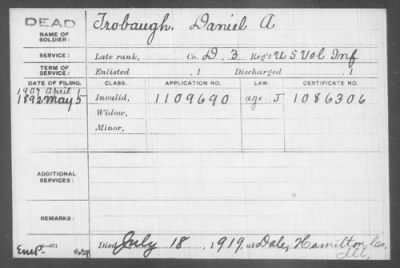 DEAD
NAME OF SOLDIER:
Trobaugh, Daniel A
SERVICE:
Late rank, Co. D. 3 Reg't U S Vol Inf
TERM OF SERVICE:
Enlisted , 1 Discharged , 1
DATE OF FILING. CLASS. APPLICATION NO. LAW. CERTIFICATE NO.
1907 April 1
1892 May 5 Invalid, 1109690 age J 1086306
Widow,
Minor,
ADDITIONAL SERVICES:
REMARKS:
Died July 18, 1919, at Dale, Hamilton Co.
Ill.